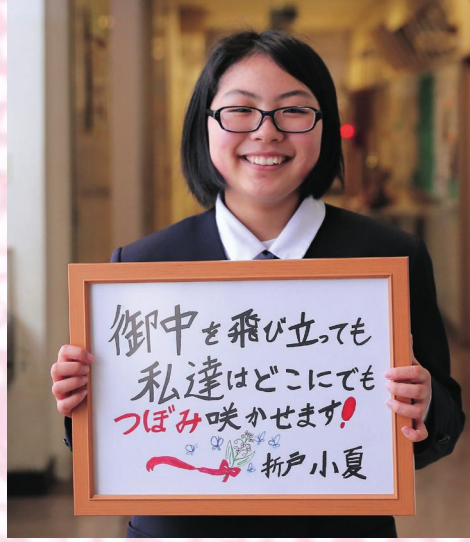 御中を飛び立っても
私達はどこにでも
つぼみ咲かせます!
折戸小夏